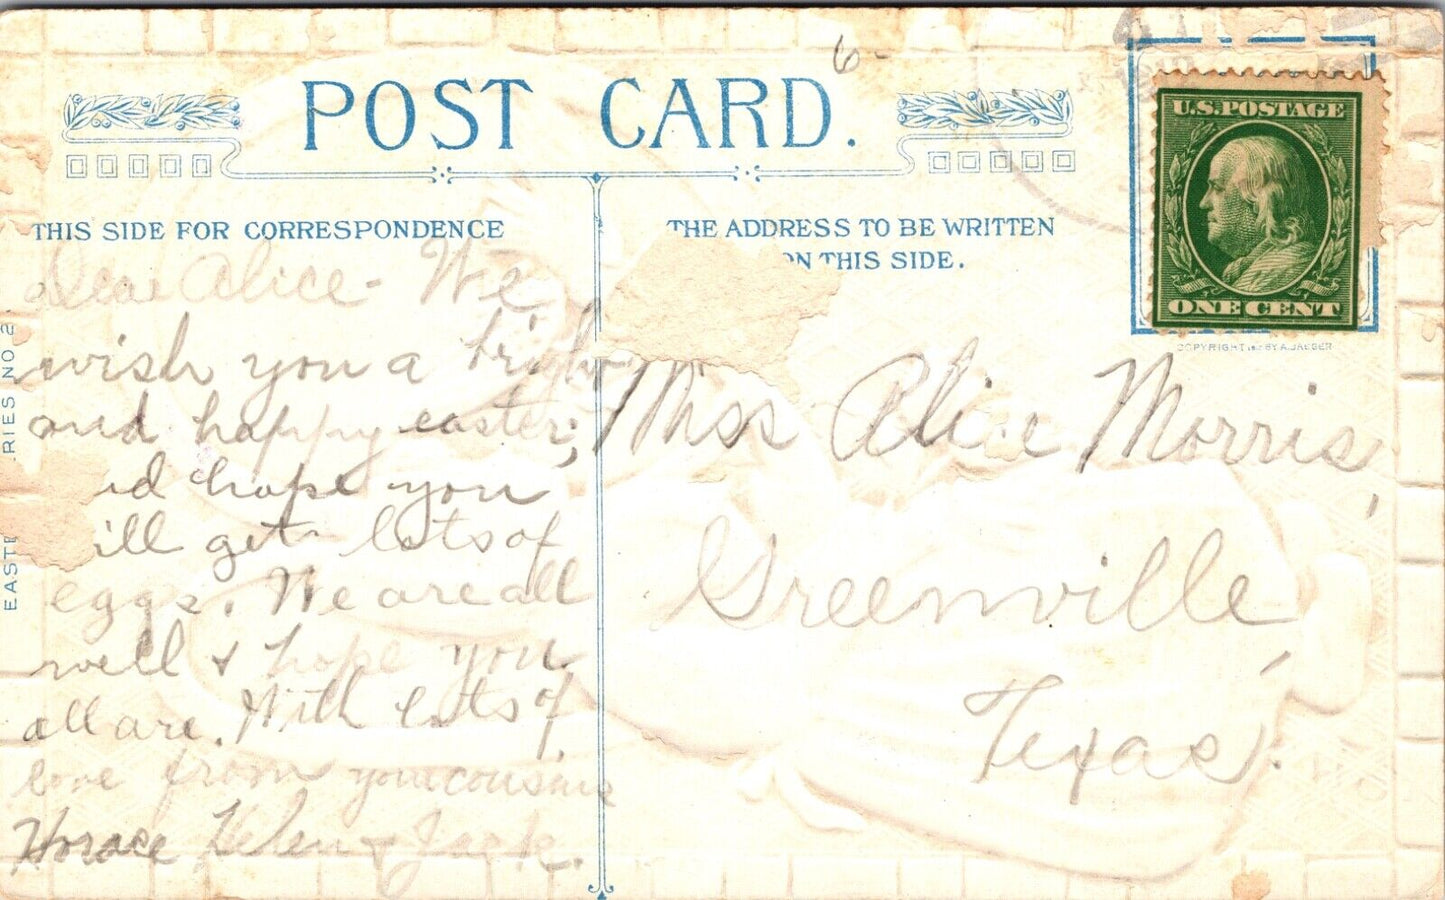 6-
POST CARD.
U.S. POSTAGE
ONE CENT
COPYRIGHT BY A. JAEGER
THIS SIDE FOR CORRESPONDENCE
THE ADDRESS TO BE WRITTEN
ON THIS SIDE.
Dear Alice - We
wish you a brigh
and happy easter;
nd hope you
ill get lots of
eggs. We are all
well & hope you
all are. With lots of
love from your cousins
Horace Helen & Jack.
Miss Alice Morris,
Greenville,
Texas.
EAST RIES NO 2